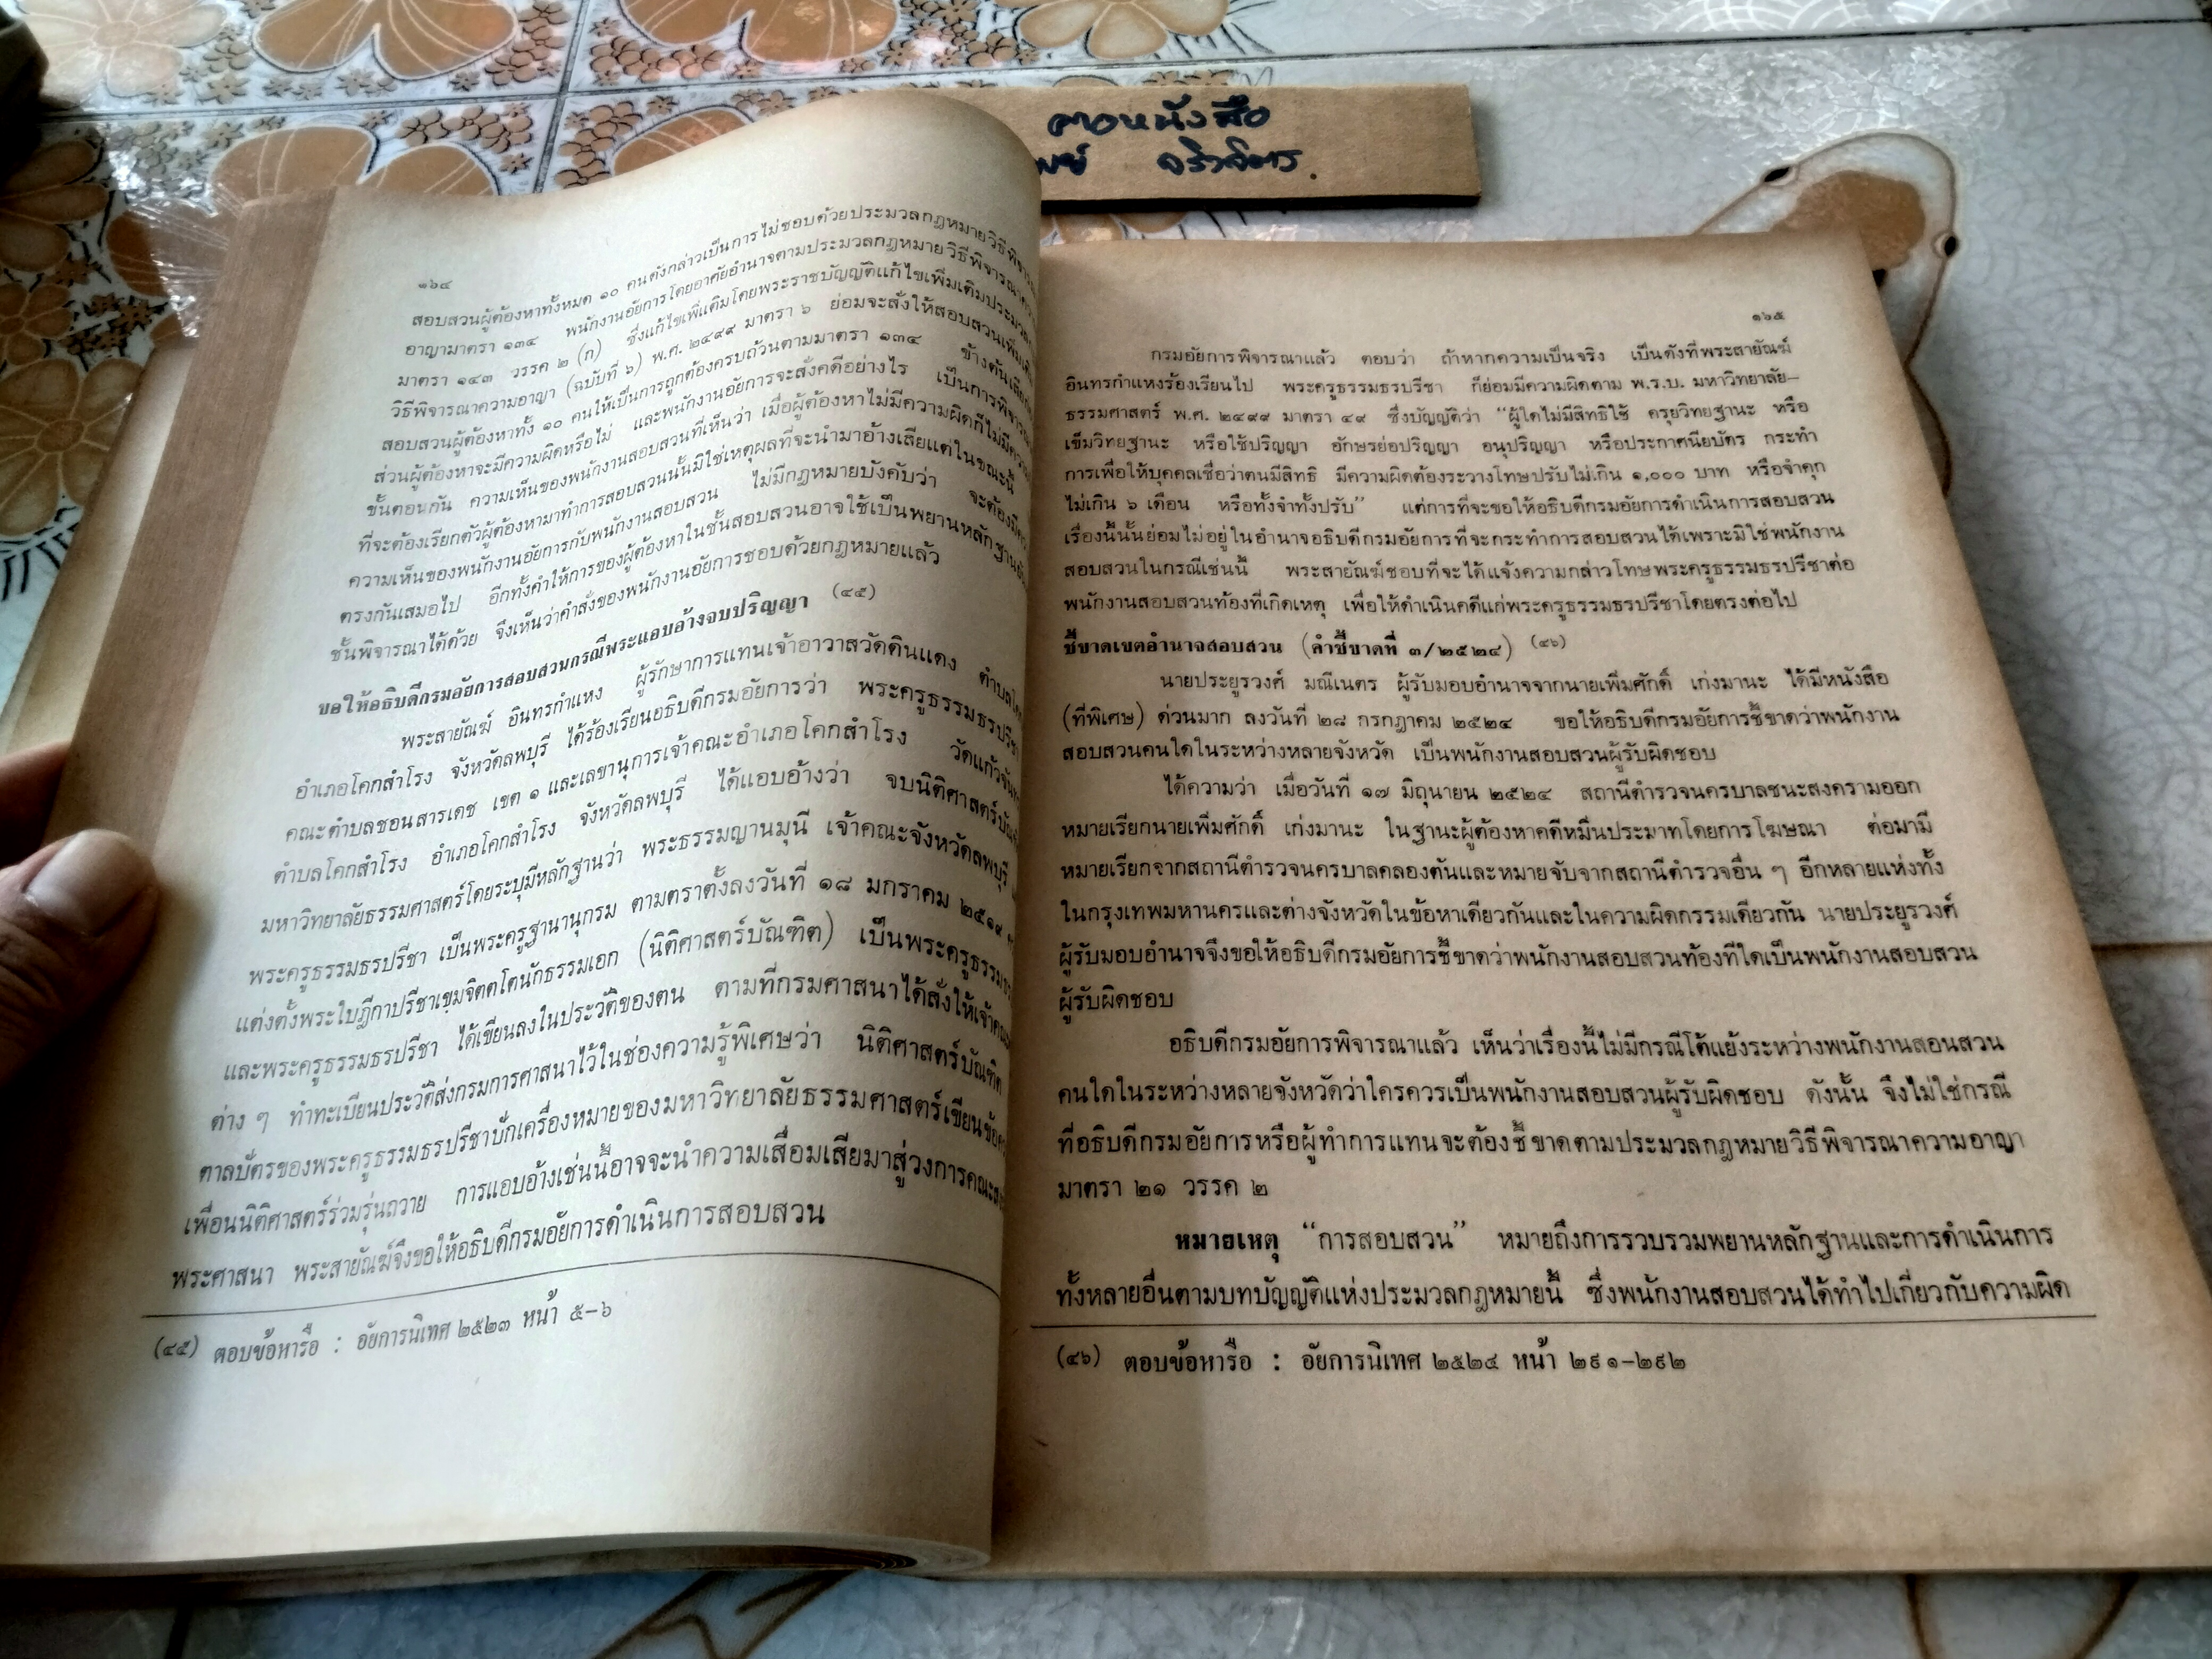 ตาอหนังสือ
จริวจิตร.
๑๖๔
สอบสวนผู้ต้องหาทั้งหมด ๑๐ คนดังกล่าวเป็นการไม่ชอบด้วยประมวลกฎหมายวิธีพิจารณา
อาญามาตรา ๑๓๔ พนักงานอัยการโดยอาศัยอำนาจตามประมวลกฎหมายวิธีพิจารณาความ
มาตรา ๑๔๓ วรรค ๒ (ก) ซึ่งแก้ไขเพิ่มเติมโดยพระราชบัญญัติแก้ไขเพิ่มเติมประมวล
วิธีพิจารณาความอาญา (ฉบับที่ ๖) พ.ศ. ๒๔๙๙ มาตรา ๖ ย่อมจะสั่งให้สอบสวนเพิ่มเติม
สอบสวนผู้ต้องหาทั้ง ๑๐ คนให้เป็นการถูกต้องครบถ้วนตามมาตรา ๑๓๔ ข้างต้นเสียก่อน
ส่วนผู้ต้องหาจะมีความผิดหรือไม่ และพนักงานอัยการจะสั่งคดีอย่างไร เป็นการพิจารณา
ขั้นตอนกัน ความเห็นของพนักงานสอบสวนที่เห็นว่า เมื่อผู้ต้องหาไม่มีความผิดก็ไม่มีความ
ที่จะต้องเรียกตัวผู้ต้องหามาทำการสอบสวนนั้นมิใช่เหตุผลที่จะนำมาอ้างเสียแต่ในขณะนี้
ความเห็นของพนักงานอัยการกับพนักงานสอบสวน ไม่มีกฎหมายบังคับว่า จะต้องมี
ตรงกันเสมอไป อีกทั้งคำให้การของผู้ต้องหาในชั้นสอบสวนอาจใช้เป็นพยานหลักฐานยัน
ชั้นพิจารณาได้ด้วย จึงเห็นว่าคำสั่งของพนักงานอัยการชอบด้วยกฎหมายแล้ว
ขอให้อธิบดีกรมอัยการสอบสวนกรณีพระแอบอ้างจบปริญญา (๔๕)
พระสายัณฆ์ อินทรกำแหง ผู้รักษาการแทนเจ้าอาวาสวัดดินแดง ตำบล
อำเภอโคกสำโรง จังหวัดลพบุรี ได้ร้องเรียนอธิบดีกรมอัยการว่า พระครูธรรมธรปรีชา
คณะตำบลชอนสารเดช เขต ๑ และเลขานุการเจ้าคณะอำเภอโคกสำโรง วัดแก้วจันท
ตำบลโคกสำโรง อำเภอโคกสำโรง จังหวัดลพบุรี ได้แอบอ้างว่า จบนิติศาสตร์บัณฑิต
มหาวิทยาลัยธรรมศาสตร์โดยระบุมีหลักฐานว่า พระธรรมญานมุนี เจ้าคณะจังหวัดลพบุรี
พระครูธรรมธรปรีชา เป็นพระครูฐานานุกรม ตามตราตั้งลงวันที่ ๑๘ มกราคม ๒๕๑๙
แต่งตั้งพระใบฎีกาปรีชาเขมจิตตโตนักธรรมเอก (นิติศาสตร์บัณฑิต) เป็นพระครูธรรมธร
และพระครูธรรมธรปรีชา ได้เขียนลงในประวัติของตน ตามที่กรมศาสนาได้สั่งให้เจ้าคณะ
ต่าง ๆ ทำทะเบียนประวัติส่งกรมการศาสนาไว้ในช่องความรู้พิเศษว่า นิติศาสตร์บัณฑิต
ตาลปัตรของพระครูธรรมธรปรีชาปักเครื่องหมายของมหาวิทยาลัยธรรมศาสตร์เขียนข้อความ
เพื่อนนิติศาสตร์ร่วมรุ่นถวาย การแอบอ้างเช่นนี้อาจจะนำความเสื่อมเสียมาสู่วงการคณะสงฆ์
พระศาสนา พระสายัณฆ์จึงขอให้อธิบดีกรมอัยการดำเนินการสอบสวน
(๔๕) ตอบข้อหารือ : อัยการนิเทศ ๒๕๒๓ หน้า ๕-๖
๑๖๕
กรมอัยการพิจารณาแล้ว ตอบว่า ถ้าหากความเป็นจริง เป็นดังที่พระสายัณฆ์
อินทรกำแหงร้องเรียนไป พระครูธรรมธรปรีชา ก็ย่อมมีความผิดตาม พ.ร.บ. มหาวิทยาลัย-
ธรรมศาสตร์ พ.ศ. ๒๔๙๙ มาตรา ๔๙ ซึ่งบัญญัติว่า “ผู้ใดไม่มีสิทธิใช้ ครุยวิทยฐานะ หรือ
เข็มวิทยฐานะ หรือใช้ปริญญา อักษรย่อปริญญา อนุปริญญา หรือประกาศนียบัตร กระทำ
การเพื่อให้บุคคลเชื่อว่าตนมีสิทธิ มีความผิดต้องระวางโทษปรับไม่เกิน ๑,๐๐๐ บาท หรือจำคุก
ไม่เกิน ๖ เดือน หรือทั้งจำทั้งปรับ” แต่การที่จะขอให้อธิบดีกรมอัยการดำเนินการสอบสวน
เรื่องนี้นั้นย่อมไม่อยู่ในอำนาจอธิบดีกรมอัยการที่จะกระทำการสอบสวนได้เพราะมิใช่พนักงาน
สอบสวนในกรณีเช่นนี้ พระสายัณฆ์ชอบที่จะได้แจ้งความกล่าวโทษพระครูธรรมธรปรีชาต่อ
พนักงานสอบสวนท้องที่เกิดเหตุ เพื่อให้ดำเนินคดีแก่พระครูธรรมธรปรีชาโดยตรงต่อไป
ชี้ขาดเขตอำนาจสอบสวน (คำชี้ขาดที่ ๓/๒๕๒๔) (๔๖)
นายประยูรวงศ์ มณีเนตร ผู้รับมอบอำนาจจากนายเพิ่มศักดิ์ เก่งมานะ ได้มีหนังสือ
(ที่พิเศษ) ด่วนมาก ลงวันที่ ๒๘ กรกฎาคม ๒๕๒๔ ขอให้อธิบดีกรมอัยการชี้ขาดว่าพนักงาน
สอบสวนคนใดในระหว่างหลายจังหวัด เป็นพนักงานสอบสวนผู้รับผิดชอบ
ได้ความว่า เมื่อวันที่ ๑๗ มิถุนายน ๒๕๒๔ สถานีตำรวจนครบาลชนะสงครามออก
หมายเรียกนายเพิ่มศักดิ์ เก่งมานะ ในฐานะผู้ต้องหาคดีหมิ่นประมาทโดยการโฆษณา ต่อมามี
หมายเรียกจากสถานีตำรวจนครบาลคลองตันและหมายจับจากสถานีตำรวจอื่น ๆ อีกหลายแห่งทั้ง
ในกรุงเทพมหานครและต่างจังหวัดในข้อหาเดียวกันและในความผิดกรรมเดียวกัน นายประยูรวงศ์
ผู้รับมอบอำนาจจึงขอให้อธิบดีกรมอัยการชี้ขาดว่าพนักงานสอบสวนท้องที่ใดเป็นพนักงานสอบสวน
ผู้รับผิดชอบ
อธิบดีกรมอัยการพิจารณาแล้ว เห็นว่าเรื่องนี้ไม่มีกรณีโต้แย้งระหว่างพนักงานสอนสวน
คนใดในระหว่างหลายจังหวัดว่าใครควรเป็นพนักงานสอบสวนผู้รับผิดชอบ ดังนั้น จึงไม่ใช่กรณี
ที่อธิบดีกรมอัยการหรือผู้ทำการแทนจะต้องชี้ขาดตามประมวลกฎหมายวิธีพิจารณาความอาญา
มาตรา ๒๑ วรรค ๒
หมายเหตุ “การสอบสวน” หมายถึงการรวบรวมพยานหลักฐานและการดำเนินการ
ทั้งหลายอื่นตามบทบัญญัติแห่งประมวลกฎหมายนี้ ซึ่งพนักงานสอบสวนได้ทำไปเกี่ยวกับความผิด
(๔๖) ตอบข้อหารือ : อัยการนิเทศ ๒๕๒๔ หน้า ๒๙๑-๒๙๒